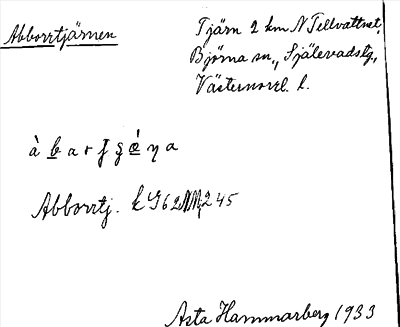 Abborrtjärnen
Tjärn 2 km N Tellvattnet,
Björna sn., Själevads tg.,
Västernorrl. l.
Abborrtj. k G62 245
Asta Hammarberg 1933